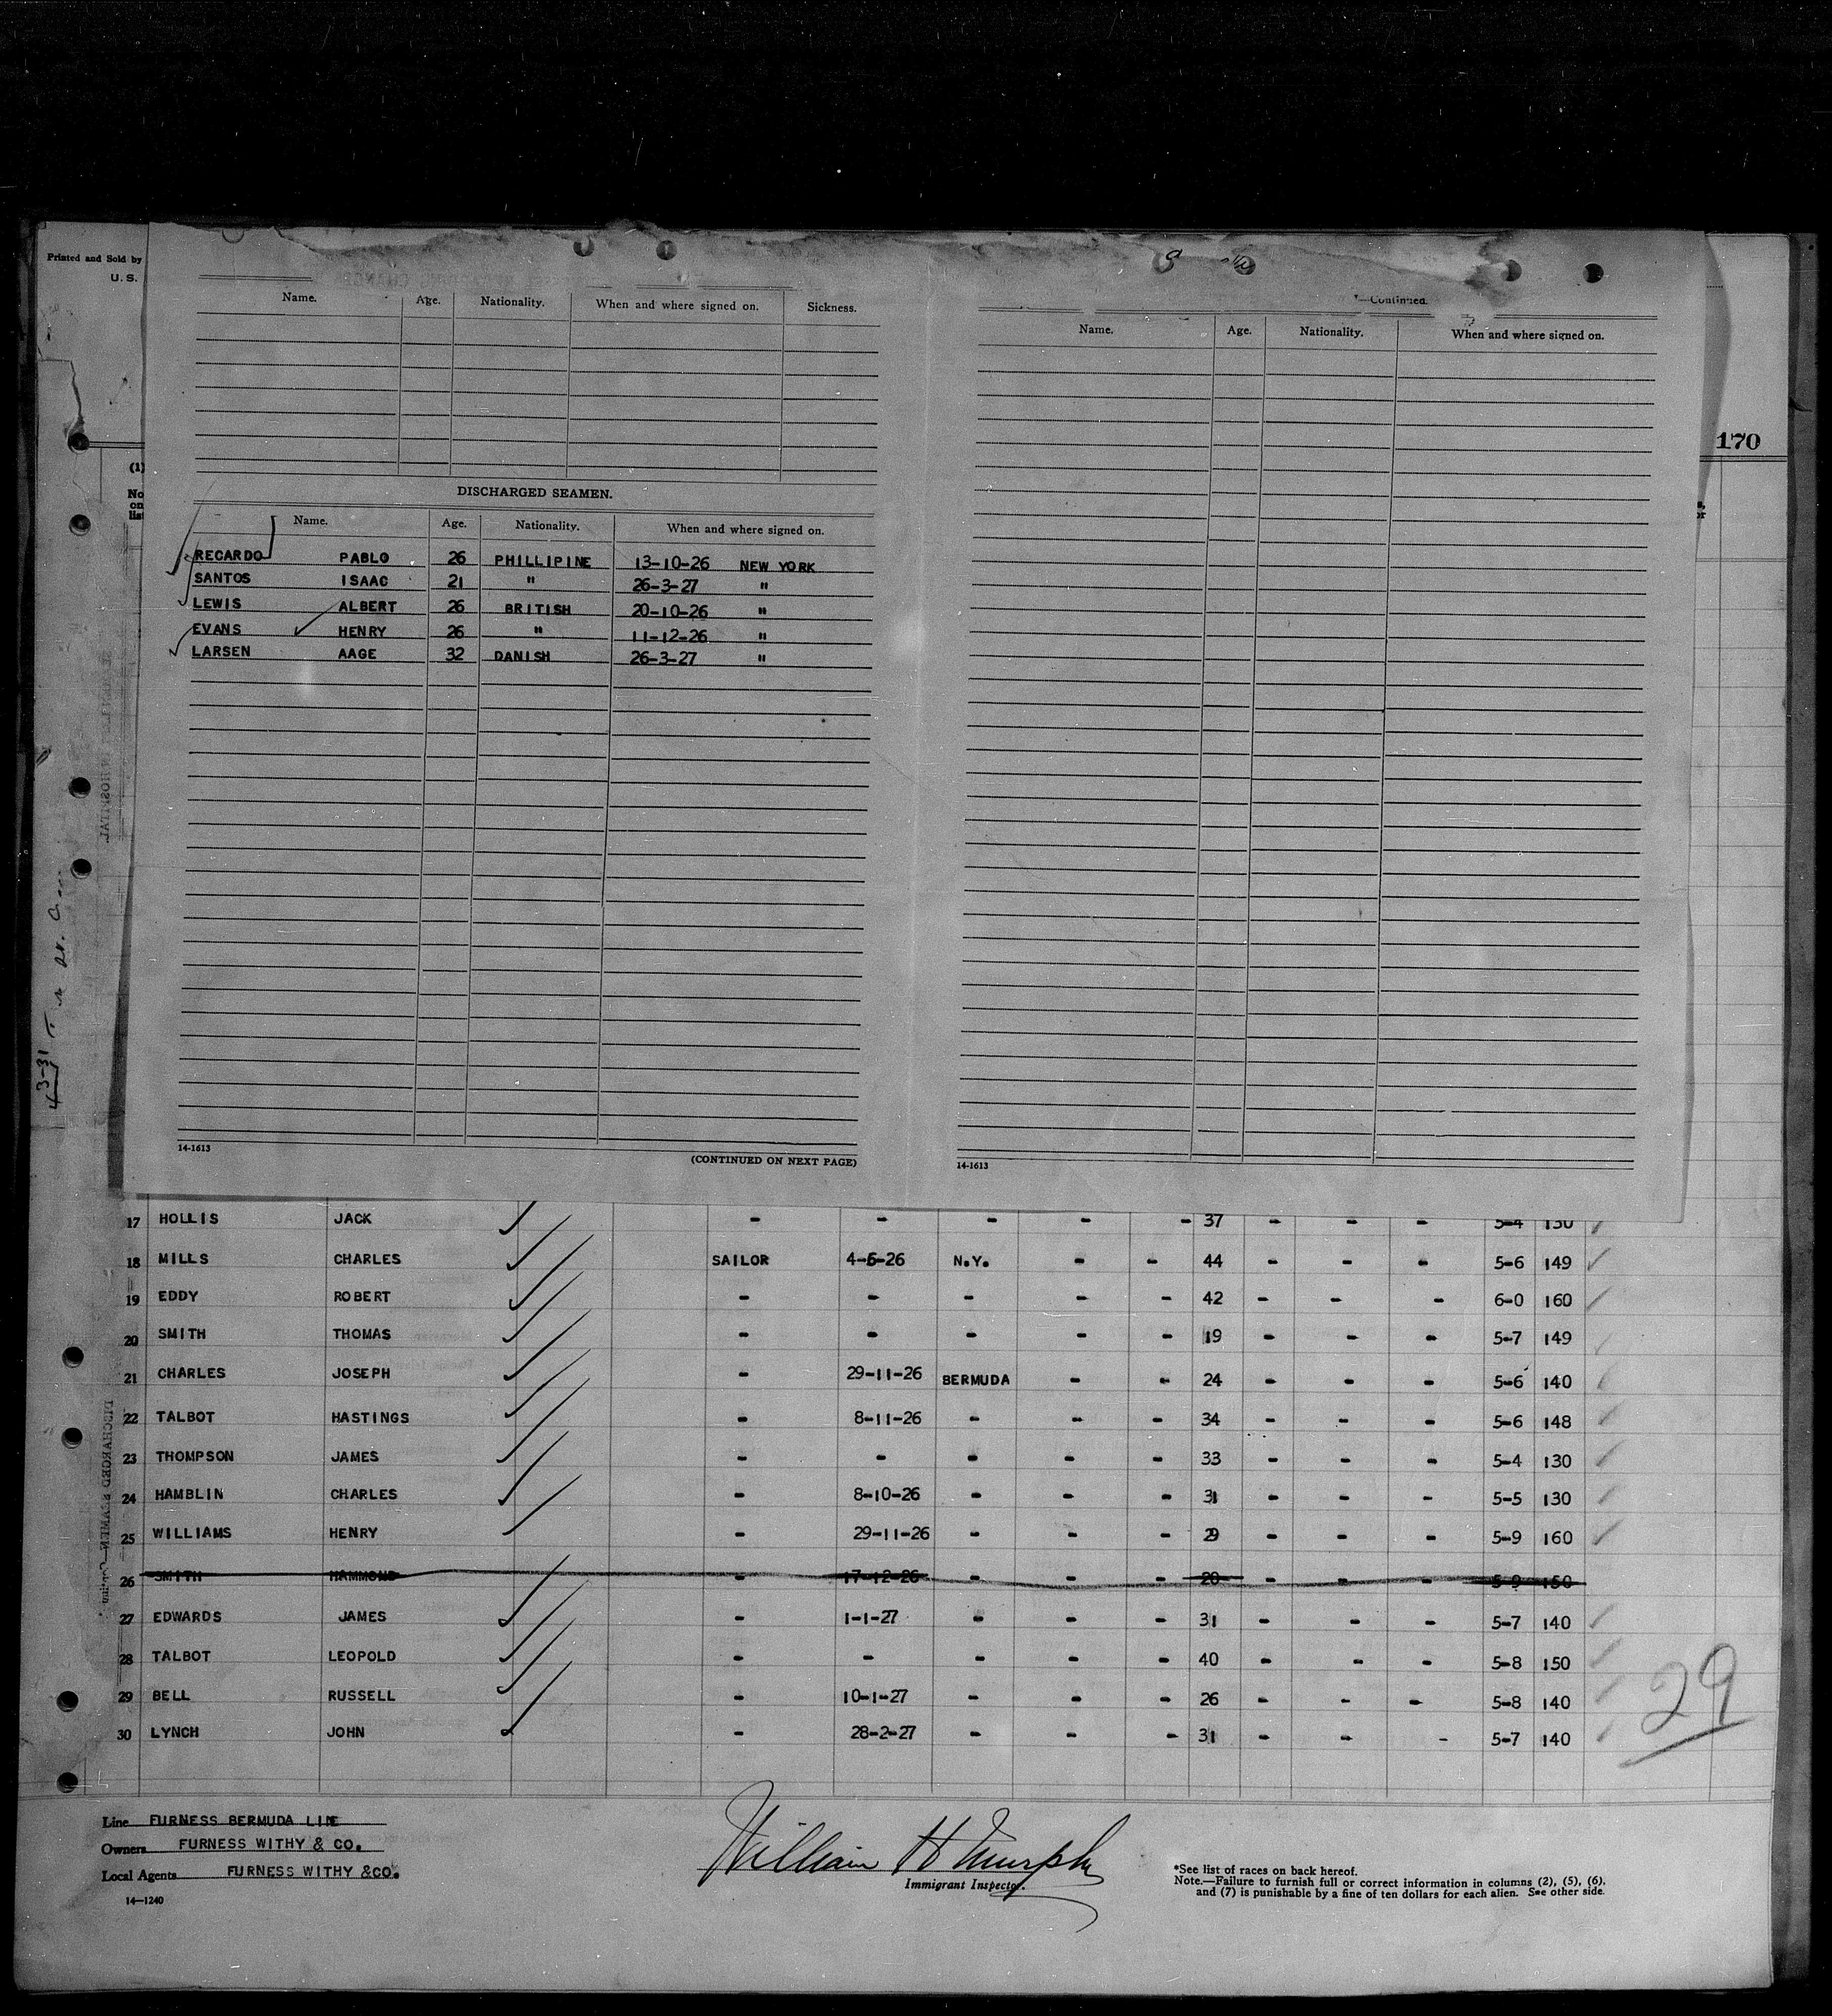 Printed and Sold by
U. S.
170
(1)
No
on
list
Name. Age. Nationality. When and where signed on. Sickness.
DISCHARGED SEAMEN.
Name. Age. Nationality. When and where signed on.
RECARDO PABLO 26 PHILLIPINE 13-10-26 NEW YORK
SANTOS ISAAC 21 " 26-3-27 "
LEWIS ALBERT 26 BRITISH 20-10-26 "
EVANS HENRY 26 " 11-12-26 "
LARSEN AAGE 32 DANISH 26-3-27 "
14-1613
(CONTINUED ON NEXT PAGE)
—Continued.
Name. Age. Nationality. When and where signed on.
14-1613
17 HOLLIS JACK - - - - - 37 - - - 5-4 130
18 MILLS CHARLES SAILOR 4-6-26 N.Y. - - 44 - - - 5-6 149
19 EDDY ROBERT - - - - - 42 - - - 6-0 160
20 SMITH THOMAS - - - - - 19 - - - 5-7 149
21 CHARLES JOSEPH - 29-11-26 BERMUDA - - 24 - - - 5-6 140
22 TALBOT HASTINGS - 8-11-26 - - - 34 - - - 5-6 148
23 THOMPSON JAMES - - - - - 33 - - - 5-4 130
24 HAMBLIN CHARLES - 8-10-26 - - - 31 - - - 5-5 130
25 WILLIAMS HENRY - 29-11-26 - - - 29 - - - 5-9 160
26 SMITH HAMMOND - 17-12-26 - - - 20 - - - 5-9 150
27 EDWARDS JAMES - 1-1-27 - - - 31 - - - 5-7 140
28 TALBOT LEOPOLD - - - - - 40 - - - 5-8 150
29 BELL RUSSELL - 10-1-27 - - - 26 - - - 5-8 140
30 LYNCH JOHN - 28-2-27 - - - 31 - - - 5-7 140
29
Line FURNESS BERMUDA LINE
Owners FURNESS WITHY & CO.
Local Agents FURNESS WITHY &CO.
14—1240
William H Murphy
Immigrant Inspector.
*See list of races on back hereof.
Note.—Failure to furnish full or correct information in columns (2), (5), (6),
and (7) is punishable by a fine of ten dollars for each alien. See other side.